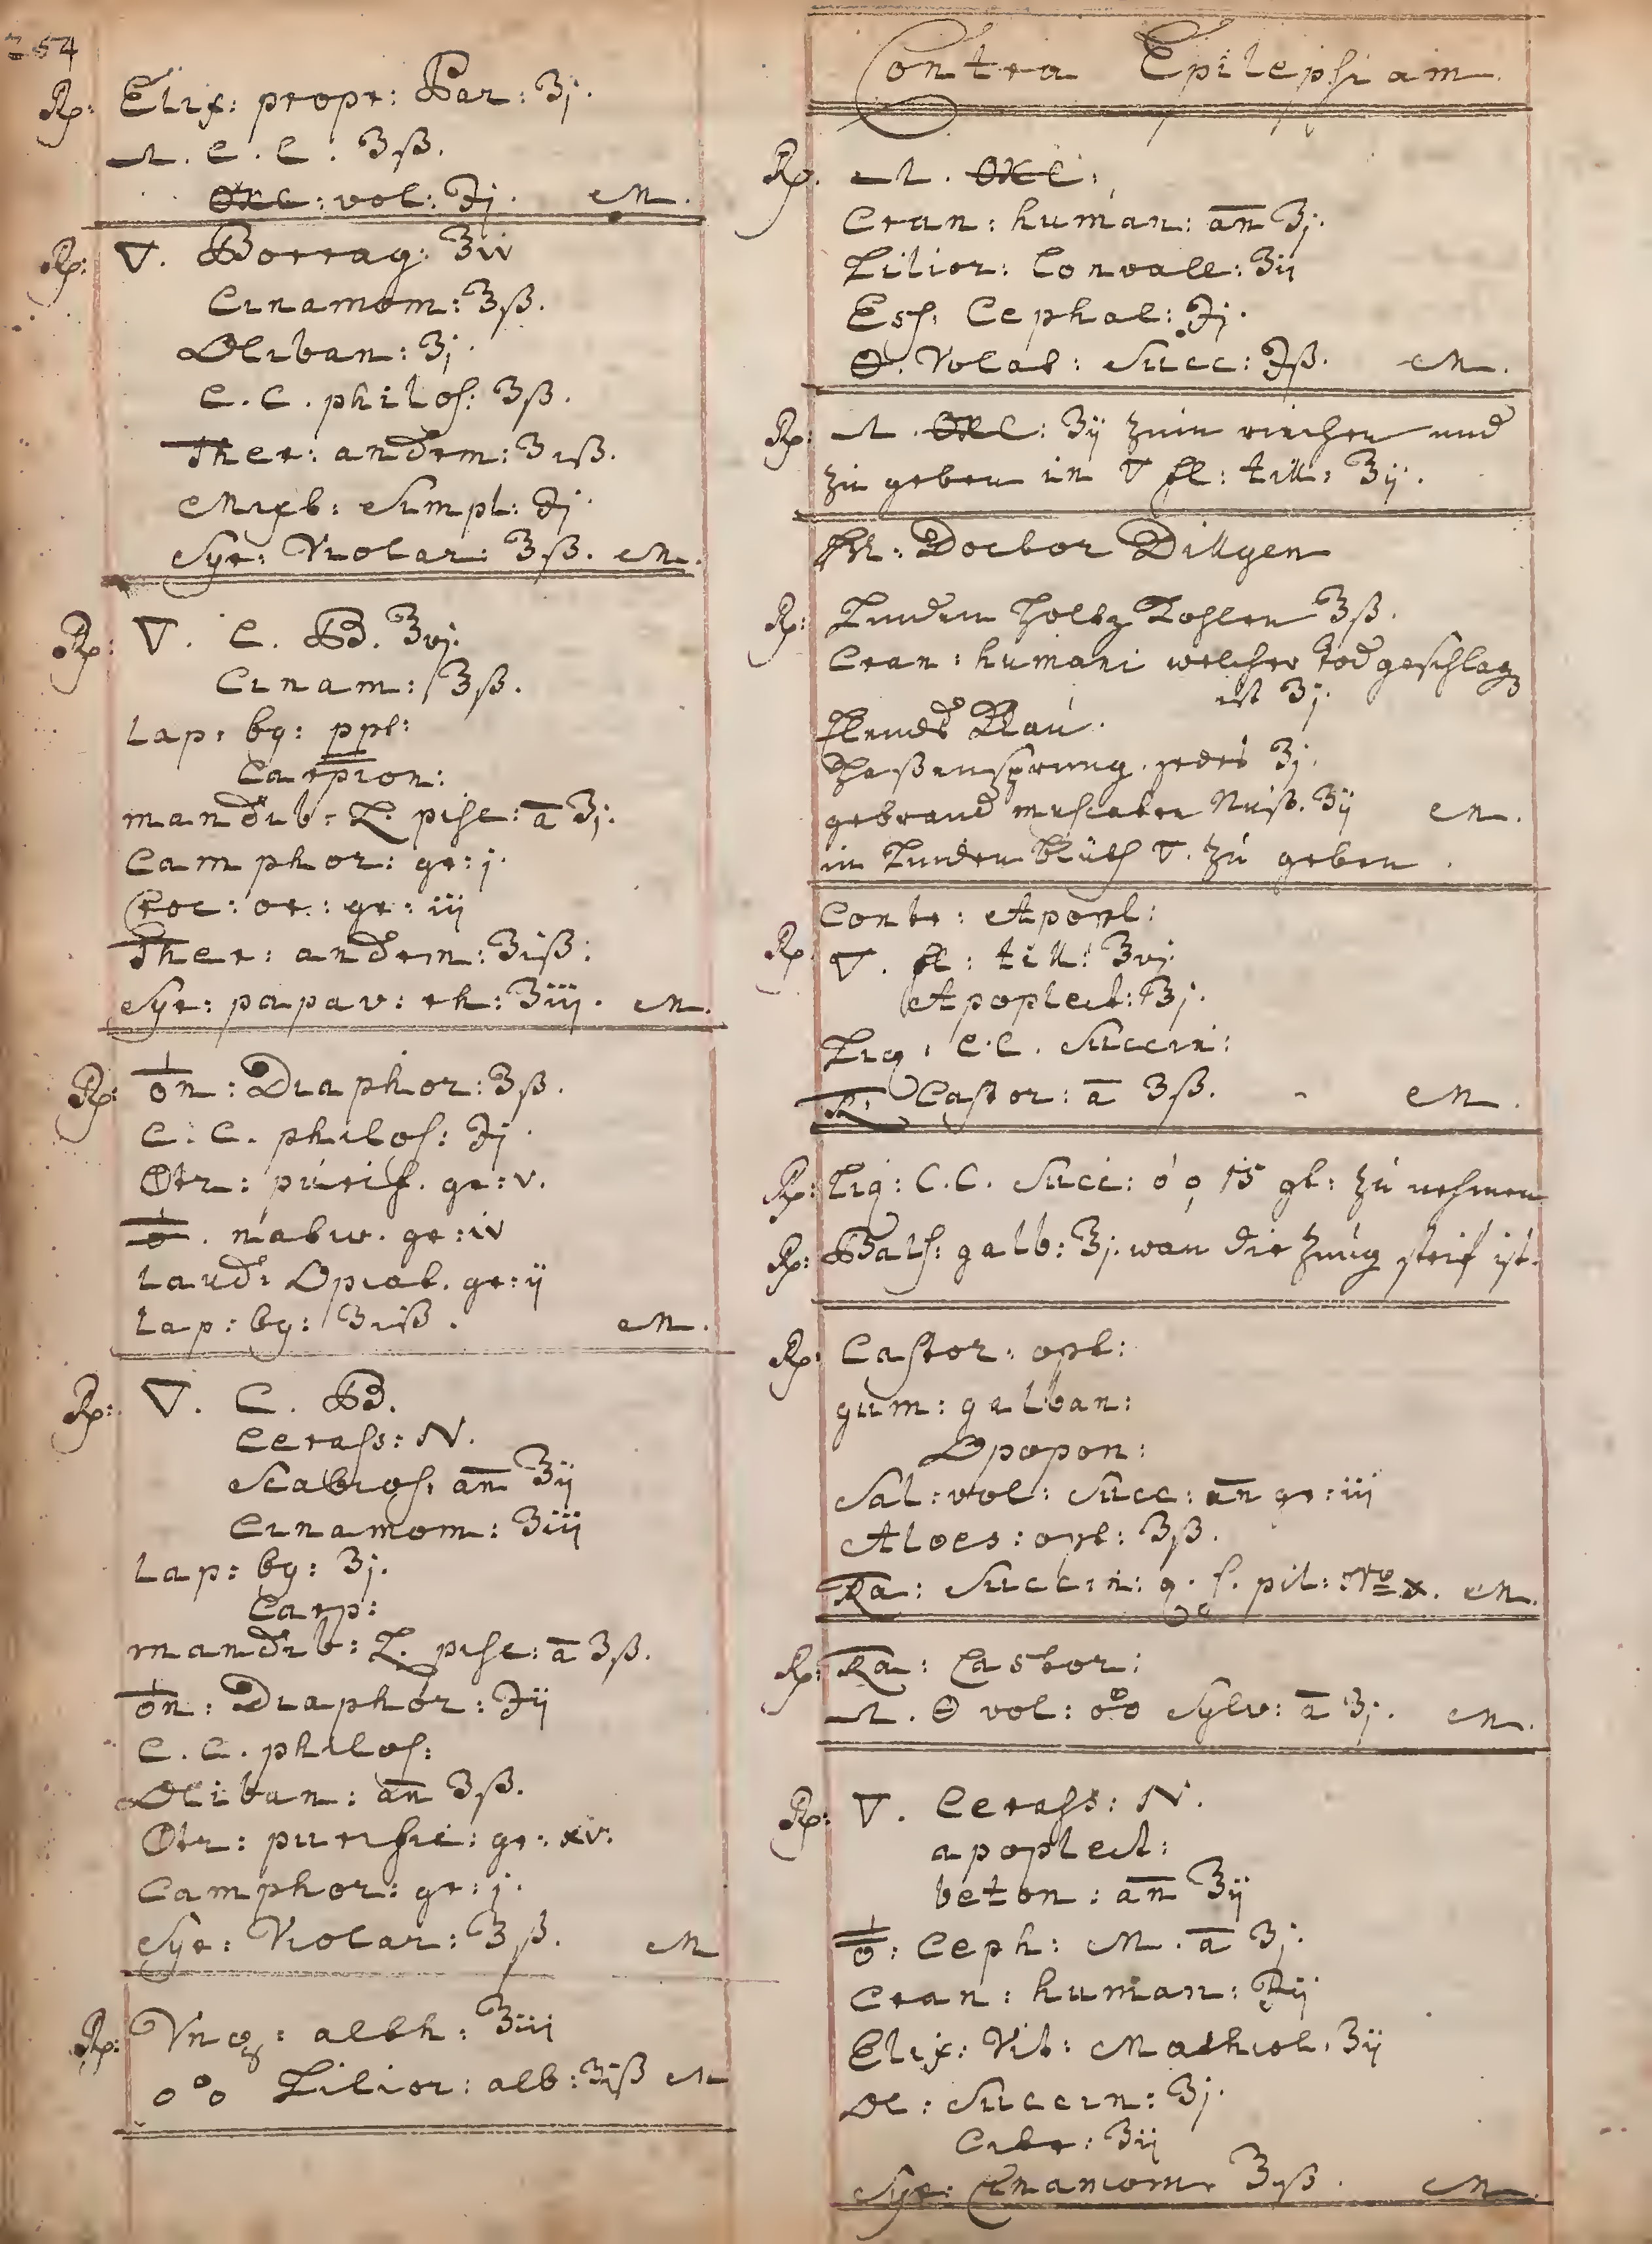 254
Rp: Elix: propr: Par: ʒj.
C. C. ʒß.
vol: ℈j. M.
Rp: ▽. Borrag: ʒiv
Cinamom: ʒß.
Oliban: ʒj.
C. C. philos: ʒß.
Ther: androm: ʒiß.
Mixt: Simpl: ℈j.
Syr: Violar: ʒß. M.
Rp: ▽. C. B. ʒvj.
Cinam: ʒß.
Lap: bz: ppt:
Carpion:
mandib: L. pisc: a ʒj.
Camphor: gr: j.
Croc: or: gr: iij
Ther: androm: ʒiß:
Syr: papav: rh: ʒiij. M.
Rp: Diaphor: ʒß.
C. C. philos: ℈j.
purif. gr: v.
gr: iv
Laud: Opiat. gr: ij
Lap: bz: ʒiß. M.
Rp: ▽. C. B.
Cerass: N.
Scabios. an ʒij
Cinamom: ʒiij
Lap: bz: ʒj.
Carp:
mandib: L. pisc: a ʒß.
Diaphor: ℈ij
C. C. philos:
Oliban: an ʒß.
purific: gr: xv.
Camphor: gr: j.
Syr: Violar: ʒß. M
Rp: Vng: alth: ʒiij
Lilior: alb: ʒiß M
Contra Epilepsiam.
Rp.
Cran: human: an ʒj.
Lilior: Convall: ʒij
Ess: Cephal: ℈j.
Volat: Succ: ℈ß. M.
Rp: ʒij zum riechen und
zu geben in ▽ fl: till: ʒij.
Doctor Dillgen
Rp: Linden Holtz Kohlen ʒß.
Cran: humani welcher Tod geschlag
ist ʒj.
Elends Klau.
Haßensprung. jedes ʒj.
gebrand muscaten Nuß. ʒij M.
in Linden blüth ▽. zu geben.
Contr: Apopl:
Rp ▽. fl: till: ʒvj.
Apoplect: ʒj.
Liq: C. C. Succin:
Castor: a ʒß. M.
Rp: Liq: C. C. Succ: 15 gt: zu nehmen
Rp: Bals: galb: ʒj. wan die Zung steif ist.
Rp: Castor: opt:
gum: galban:
Opopon:
Sal: vol: Succ: an gr: iij
Aloes: opt: ʒß.
Succin: q. s. pil: No x. M.
Rp: Castor:
vol: Sylv: a ʒj. M.
Rp: ▽. Cerass: N.
apoplect:
beton: an ʒij
Ceph: M. a ʒj.
Cran: human: ℈ij
Elix: Vit: Mathiol. ʒij
Ol: Succin: ʒj.
Citr: ʒij
Syr: Cinamom. ʒß. M.